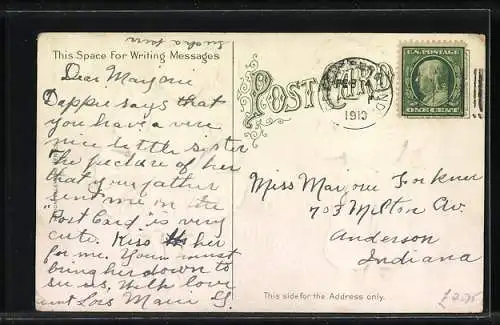 This Space For Writing Messages
Dear Marjorie
Dappie says that
you have a very
nice little sister
The picture of her
that your father
sent me in the
"Post Card" is very
cute. Kiss her
for me. You must
bring her down to
see us. With love
Aunt Lois Marie
POST CARD
1910
U.S. POSTAGE
ONE CENT
Miss Marjorie Forkner
703 Milton Av.
Anderson
Indiana
This side for the Address only.